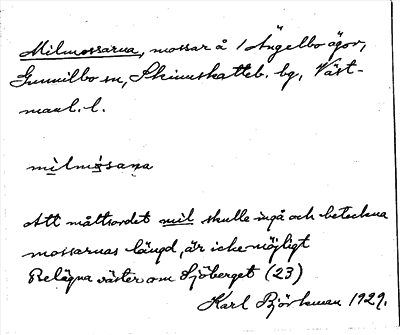 Milmossarna, mossar å Ängelbo ägor,
Gunnilbo sn, Skinnskatteb. bg, Väst-
manl. l.
milmosana
Att måttsordet mil skulle ingå och beteckna
mossarnas längd, är icke möjligt
Belägna väster om Sjöberget (23)
Karl Björkman 1929.